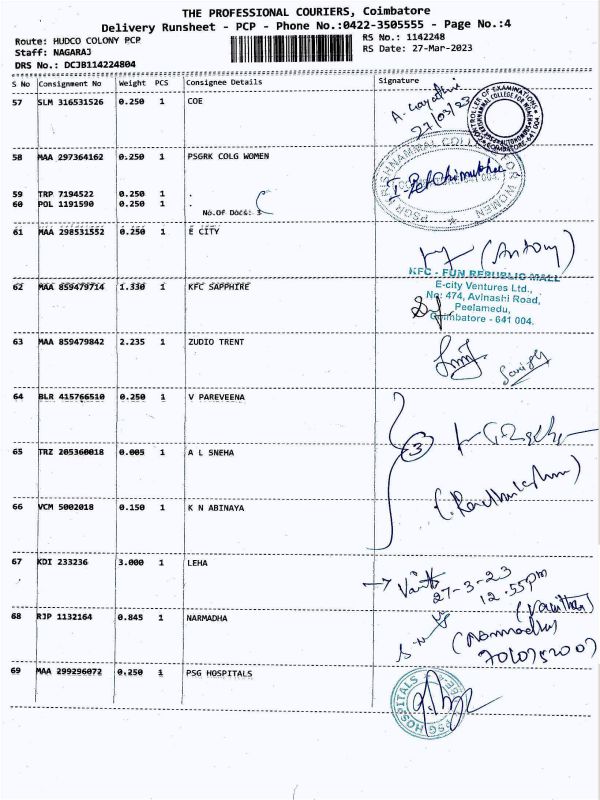 THE PROFESSIONAL COURIERS, Coimbatore
Delivery Runsheet - PCP - Phone No.:0422-3505555 - Page No.:4
Route: HUDCO COLONY PCP
RS No.: 1142248
Staff: NAGARAJ
RS Date: 27-Mar-2023
DRS No.: DCJB114224804
S No Consignment No Weight PCS Consignee Details Signature
57 SLM 316531526 0.250 1 COE
27/03/23
58 MAA 297364162 0.250 1 PSGRK COLG WOMEN
59 TRP 7194522 0.250 1 .
60 POL 1191590 0.250 1 .
No.Of Docs: 3
61 MAA 298531552 0.250 1 E CITY
(Antony)
KFC - FUN REPUBLIC MALL
62 MAA 859479714 1.330 1 KFC SAPPHIRE
E-city Ventures Ltd.,
No: 474, Avinashi Road,
Peelamedu,
Coimbatore - 641 004.
63 MAA 859479842 2.235 1 ZUDIO TRENT
64 BLR 415766510 0.250 1 V PAREVEENA
3
65 TRZ 205360018 0.005 1 A L SNEHA
66 VCM 5002018 0.150 1 K N ABINAYA
67 KDI 233236 3.000 1 LEHA
27-3-23
12.55pm
(Vanitha)
68 RJP 1132164 0.845 1 NARMADHA
(Narmadha)
69 MAA 299296072 0.250 1 PSG HOSPITALS
PSG HOSPITALS